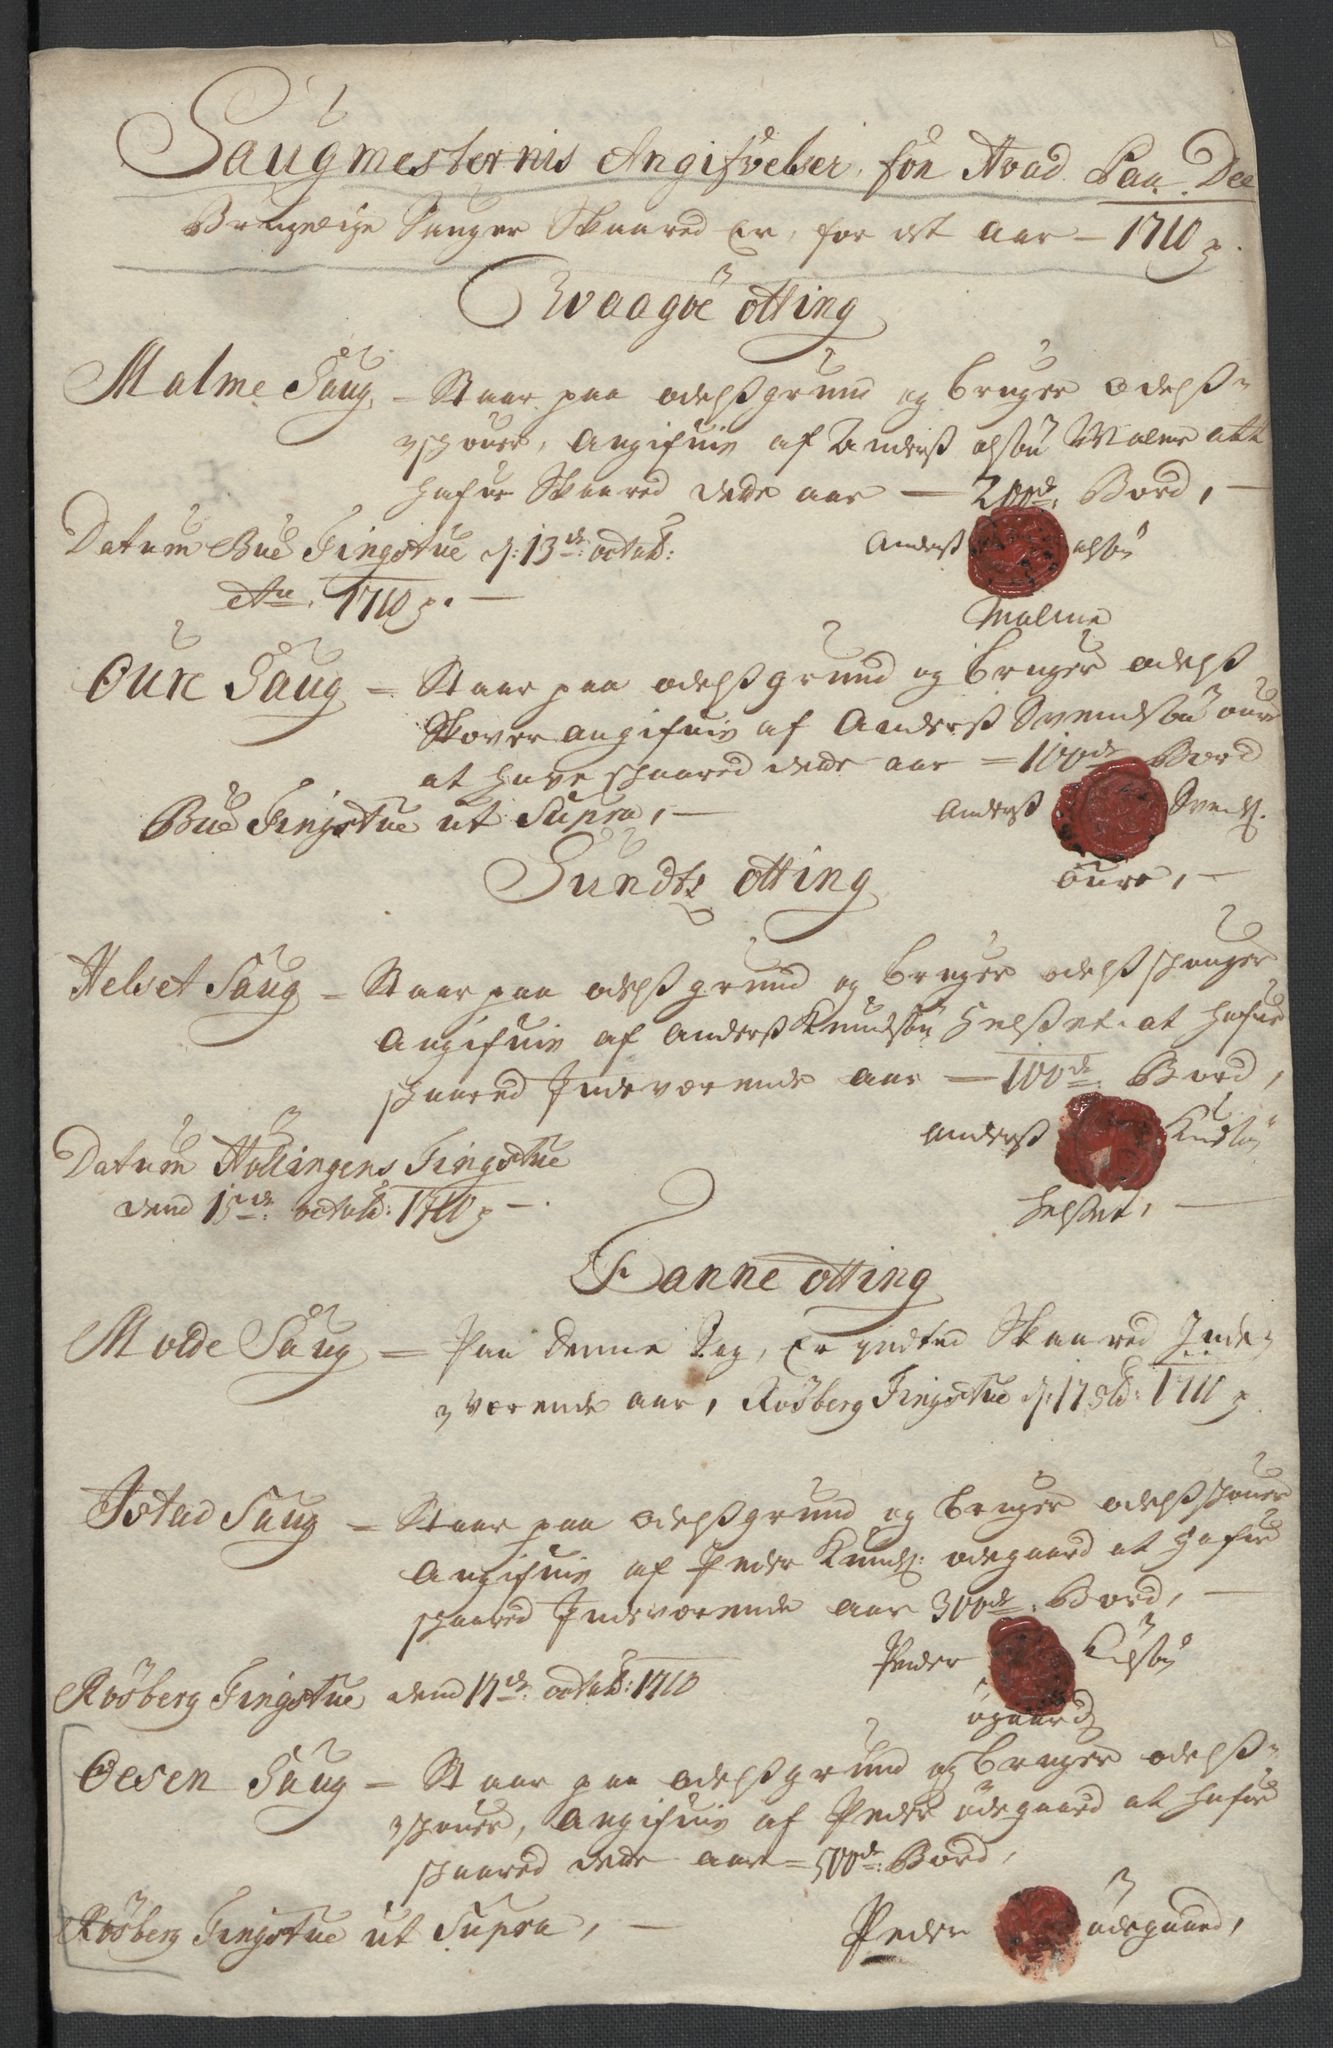 Saugmesternis Angifvelser, for Hvad Paa Dee
Brugelige Sauger Skaared Er, for det aar – 1710
Waagöe otting
Malme Saug, – Staar paa odelß grund og bruger odelß-
schouer, Angifuis af Anderß olsön Malme att
hafue Skaared dette aar — 200de Bord, –
Datum Bud Tingstue d: 13de octob:
Ao 1710
Anderß olsön
Malme
Oure Saug – Staar paa odelß grund og bruger odelß
Skover angifuis af Anderß Svendsön oure
at have skaared dette aar – 100de Bord
Bud Tingstue ut Supra, –
Anderß Svends.
oure, –
Sundts otting
Helset Saug – Staar paa odelß grund og bruger odelß schouger
Angifuis af Anderß Knudsön Helset at hafue
skaared Indeværende aar – 100de Bord,
Datum Hollingens Tingstue
dend 15de octob: 1710 –
Anderß Knudsön
Helset, –
Fanne otting
Molde Saug – Paa denne Sag, Er intted Skaared Inde-
værende aar, Rösberg Tingstue d: 17 8b: 1710
Istad Saug – Staar paa odelß grund og bruger odelß schouer
Angifuis af Peder Knuds: ödegaard at hafue
skaared Indeværende aar 300de Bord, –
Rösberg Tingstue dend 17de octob: 1710
Peder Knudsön
ögaard
Oesen Saug – Staar paa odelß grund og bruger odelß-
schouer, Angifuis af Peder ödegaard at hafue
skaared dette aar – 500de Bord,
Rösberg Tingstue ut Supra, –
Peder ödegaard,